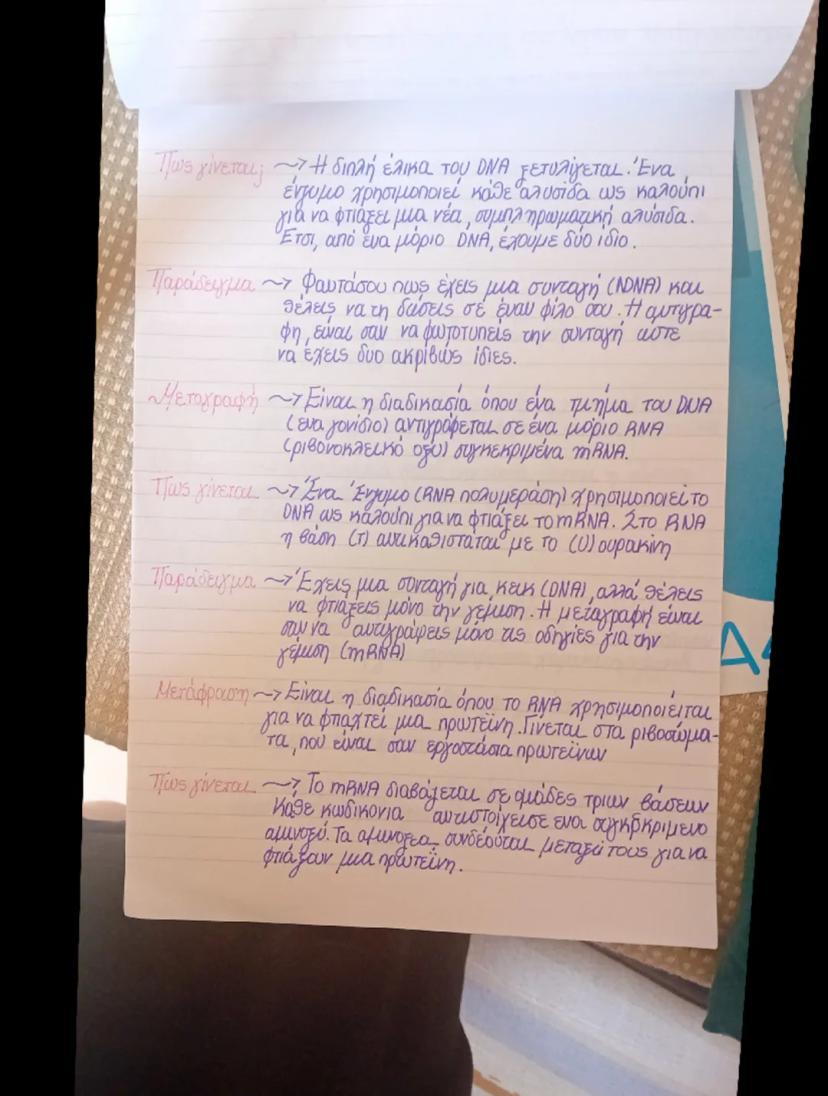 Πως γίνεται; ~> Η διπλή έλικα του DNA ξετυλίγεται. Ένα
ένζυμο χρησιμοποιεί κάθε αλυσίδα ως καλούπι
για να φτιάξει μια νέα, συμπληρωματική αλυσίδα.
Έτσι, από ένα μόριο DNA, έχουμε δύο ίδιο.
Παράδειγμα ~> Φαντάσου πως έχεις μια συνταγή (DNA) και
θέλεις να τη δώσεις σε έναν φίλο σου. Η αντιγρα-
φη, είναι σαν να φωτοτυπείς την συνταγή ώστε
να έχεις δυο ακριβώς ίδιες.
Μεταγραφή ~> Είναι η διαδικασία όπου ένα τμήμα του DNA
(ένα γονίδιο) αντιγράφεται σε ένα μόριο RNA
(ριβονοκλεικό οξύ) συγκεκριμένα mRNA.
Πως γίνεται ~> Ένα Ένζυμο (RNA πολυμεράση) χρησιμοποιεί το
DNA ως καλούπι για να φτιάξει το mRNA. Στο RNA
η βάση (T) αντικαθιστάται με το (U) ουρακίνη
Παράδειγμα ~> Έχεις μια συνταγή για κεικ (DNA), αλλά θέλεις
να φτιάξεις μόνο την γέμιση. Η μεταγραφή είναι
σαν να αντιγράφεις μόνο τις οδηγίες για την
γέμιση (mRNA)
Μετάφραση ~> Είναι η διαδικασία όπου το RNA χρησιμοποιείται
για να φτιαχτεί μια πρωτεϊνη. Γίνεται στα ριβοσώμα-
τα, που είναι σαν εργοστάσια πρωτεϊνων
Πως γίνεται ~> Το mRNA διαβάζεται σε ομάδες τριων βάσεων
Κάθε κωδικονια αντιστοίχεισε ενα συγκεκριμενο
αμινοξύ. Τα αμινοξεα συνδέονται μεταξύ τους για να
φτιάξουν μια πρωτεϊνη.